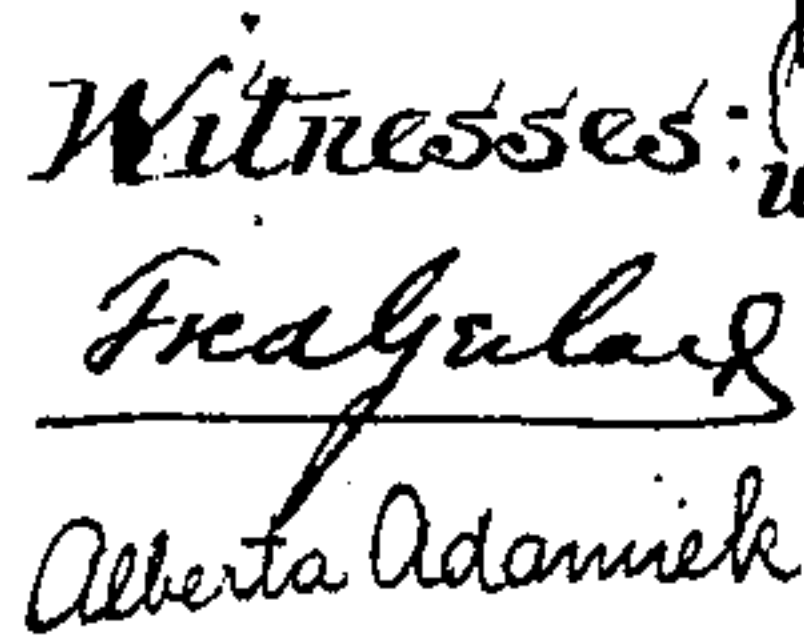 Witnesses:
Fred Gerlach
Alberta Adamick